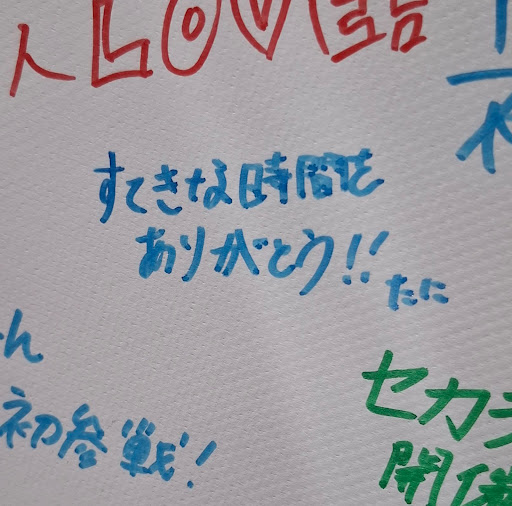 人 LOVE
すてきな時間を
ありがとう!!
たに
ん
初参戦!
セカ
開催